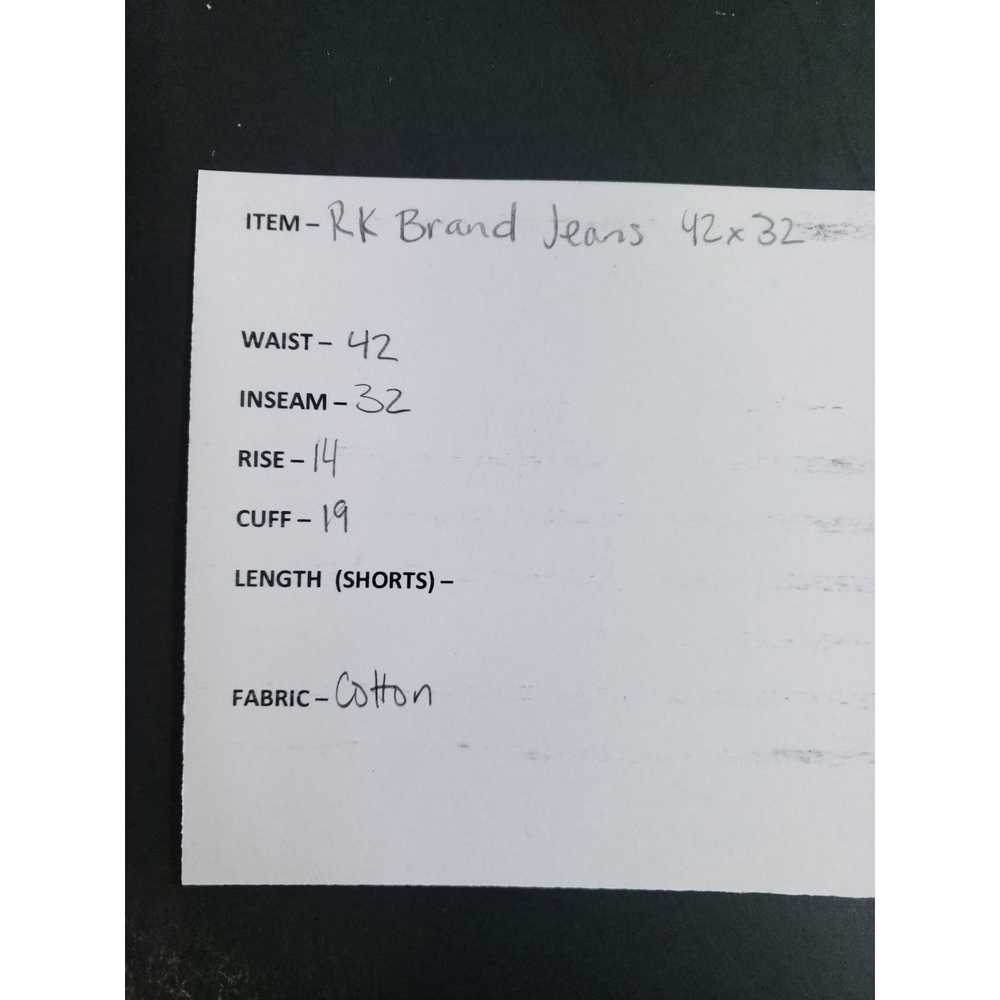 ITEM – RK Brand Jeans 42x32
WAIST – 42
INSEAM – 32
RISE – 14
CUFF – 19
LENGTH (SHORTS) –
FABRIC – Cotton